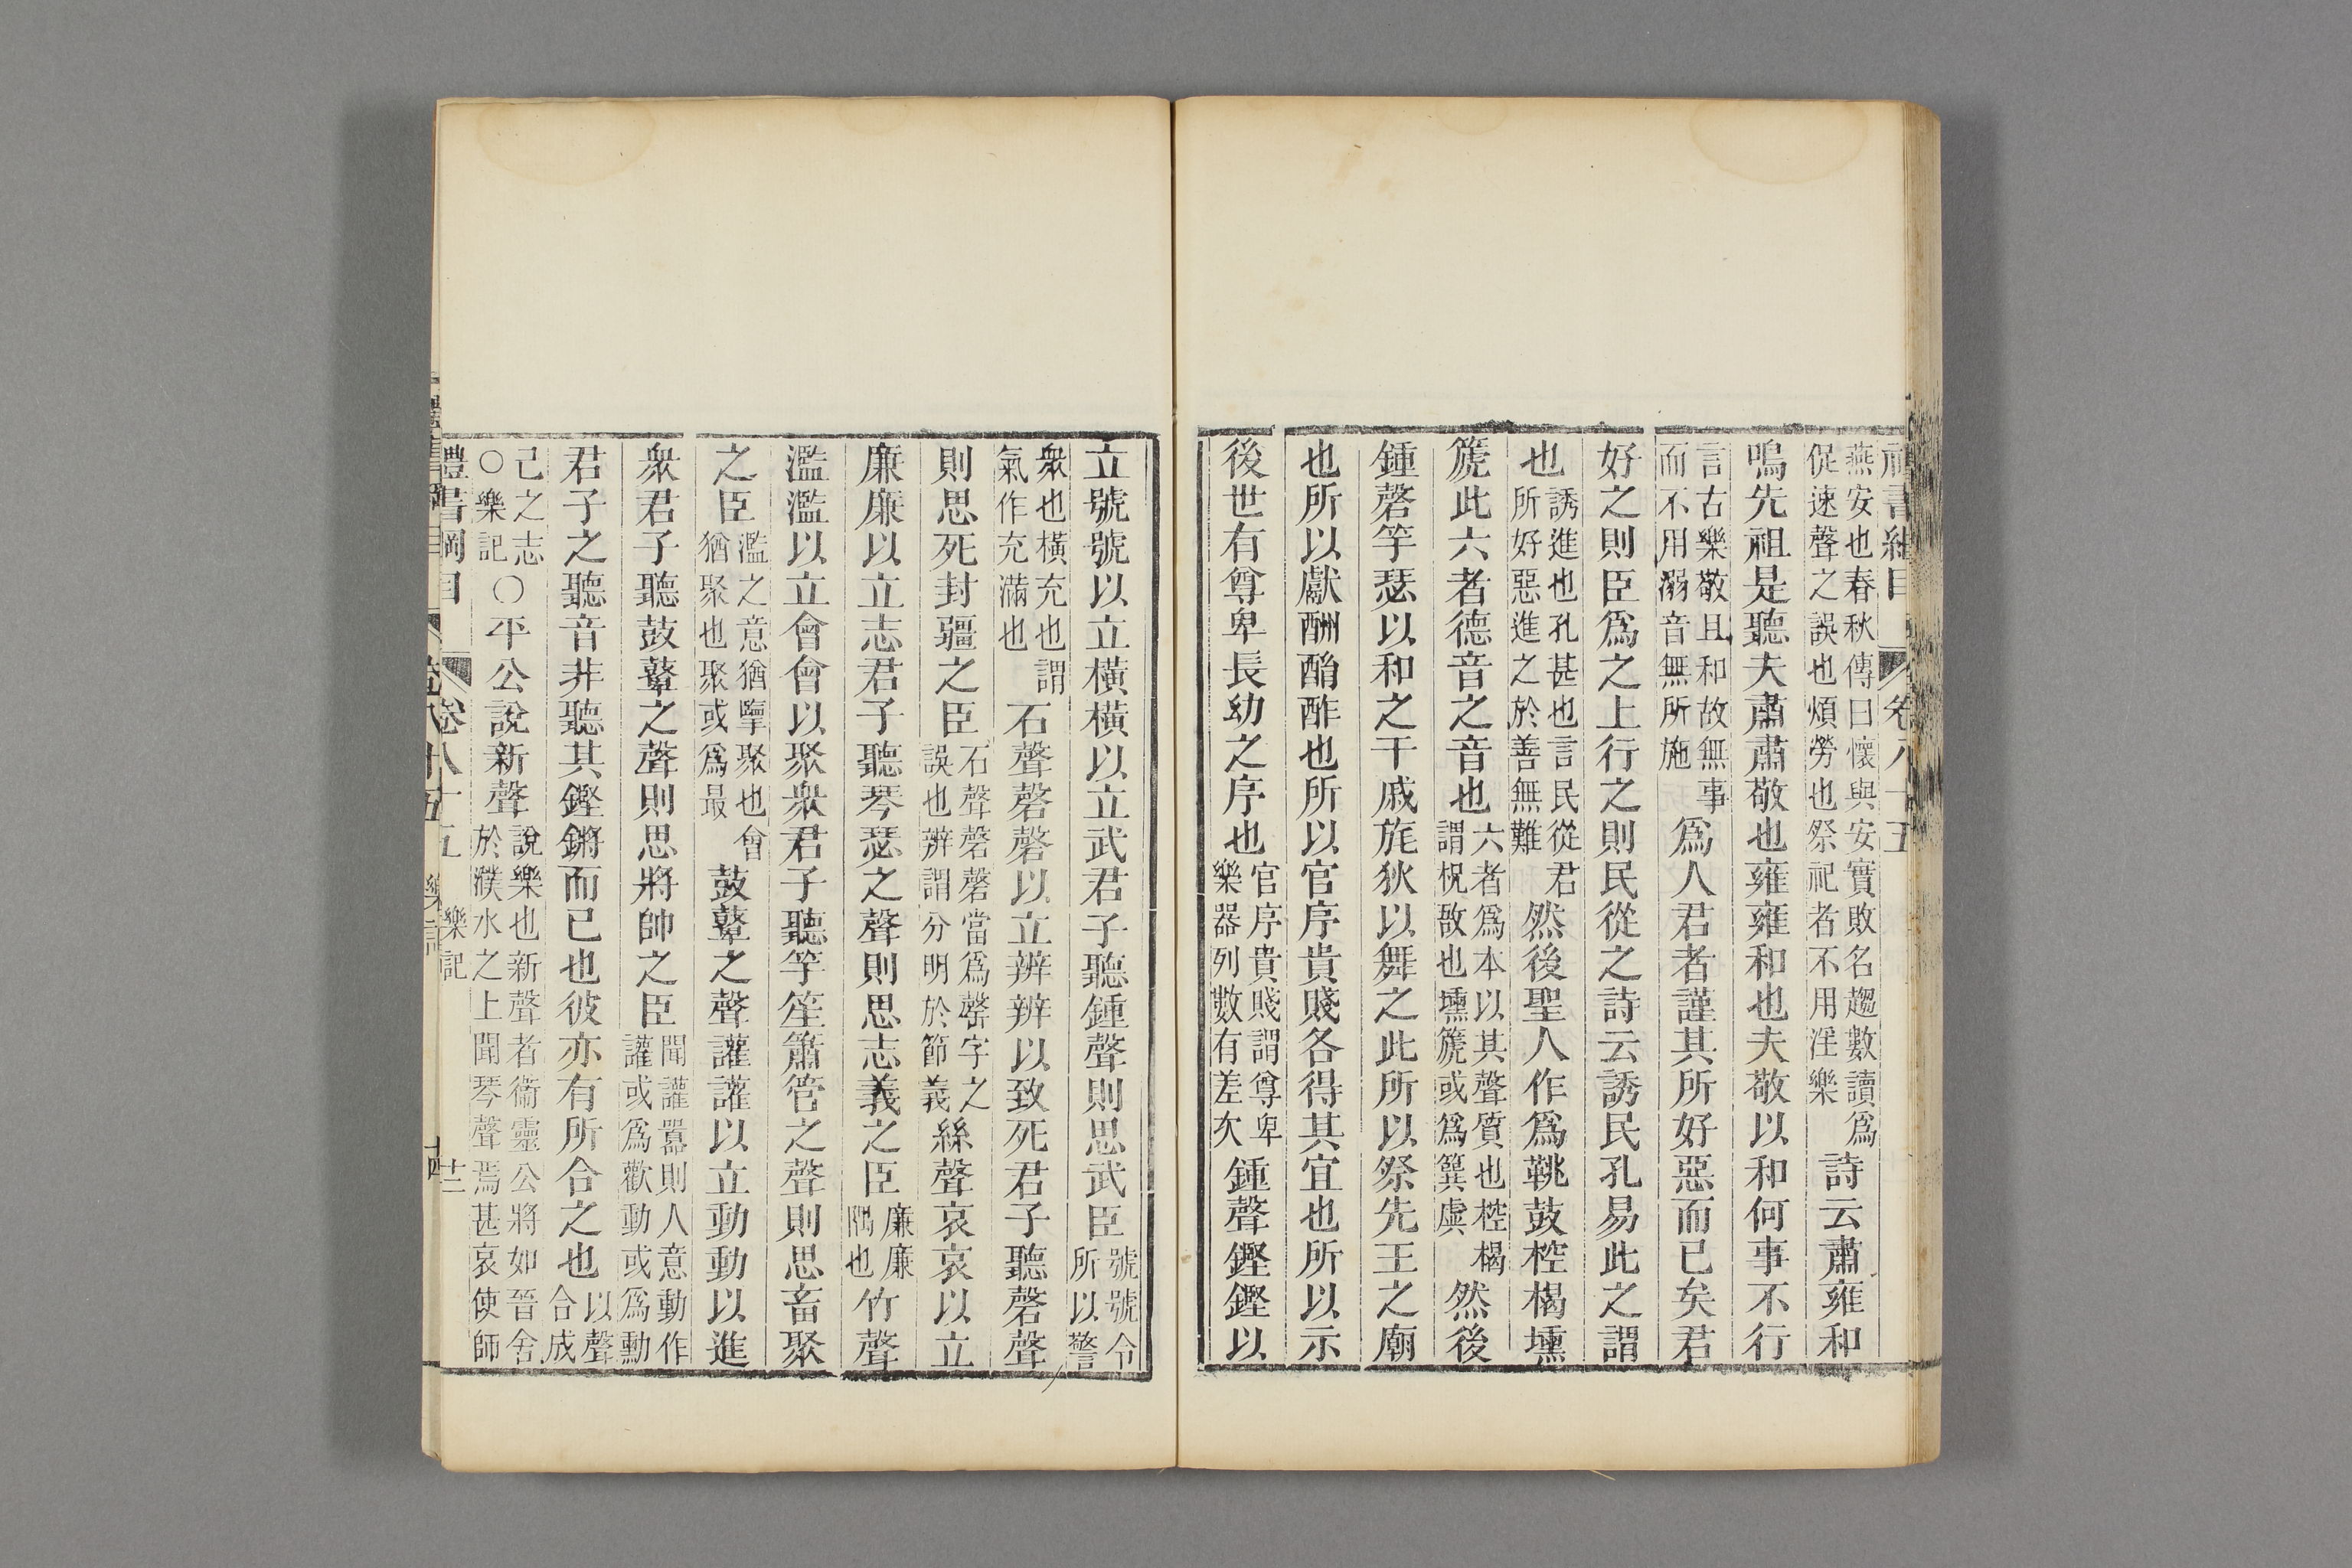 禮書綱目 卷八十五
燕安也春秋傳曰懷與安實敗名趨數讀爲
促速聲之誤也煩勞也祭祀者不用淫樂
詩云肅雍和
鳴先祖是聽夫肅肅敬也雍雍和也夫敬以和何事不行
言古樂敬且和故無事
而不用溺音無所施
爲人君者謹其所好惡而已矣君
好之則臣爲之上行之則民從之詩云誘民孔易此之謂
也
誘進也孔甚也言民從君
所好惡進之於善無難
然後聖人作爲鞉鼓椌楬壎
篪此六者德音之音也
六者爲本以其聲質也椌楬
謂柷敔也壎篪或爲簨虡
然後
鍾磬竽瑟以和之干戚旄狄以舞之此所以祭先王之廟
也所以獻酬酳酢也所以官序貴賤各得其宜也所以示
後世有尊卑長幼之序也
官序貴賤謂尊卑
樂器列數有差次
鍾聲鏗鏗以
立號號以立橫橫以立武君子聽鍾聲則思武臣
號號令
所以警
衆也橫充也謂
氣作充滿也
石聲磬磬以立辨辨以致死君子聽磬聲
則思死封疆之臣
石聲磬磬當爲罄字之
誤也辨謂分明於節義
絲聲哀哀以立
廉廉以立志君子聽琴瑟之聲則思志義之臣
廉廉
隅也
竹聲
濫濫以立會會以聚衆君子聽竽笙簫管之聲則思畜聚
之臣
濫之意猶擥聚也會
猶聚也聚或爲最
鼓鼙之聲讙讙以立動動以進
衆君子聽鼓鼙之聲則思將帥之臣
聞讙嚻則人意動作
讙或爲歡動或爲勳
君子之聽音非聽其鏗鏘而已也彼亦有所合之也
以聲
合成
己之志
○樂記
○平公說新聲
說樂也新聲者衞靈公將如晉舍
於濮水之上聞琴聲焉甚哀使師
禮書綱目 卷八十五 樂記